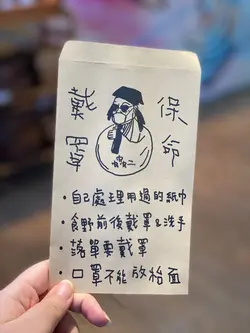 戴罩
保命
虫二
• 自己處理用過的紙巾
• 食野前後戴罩&洗手
• 落單要戴罩
• 口罩不能放枱面